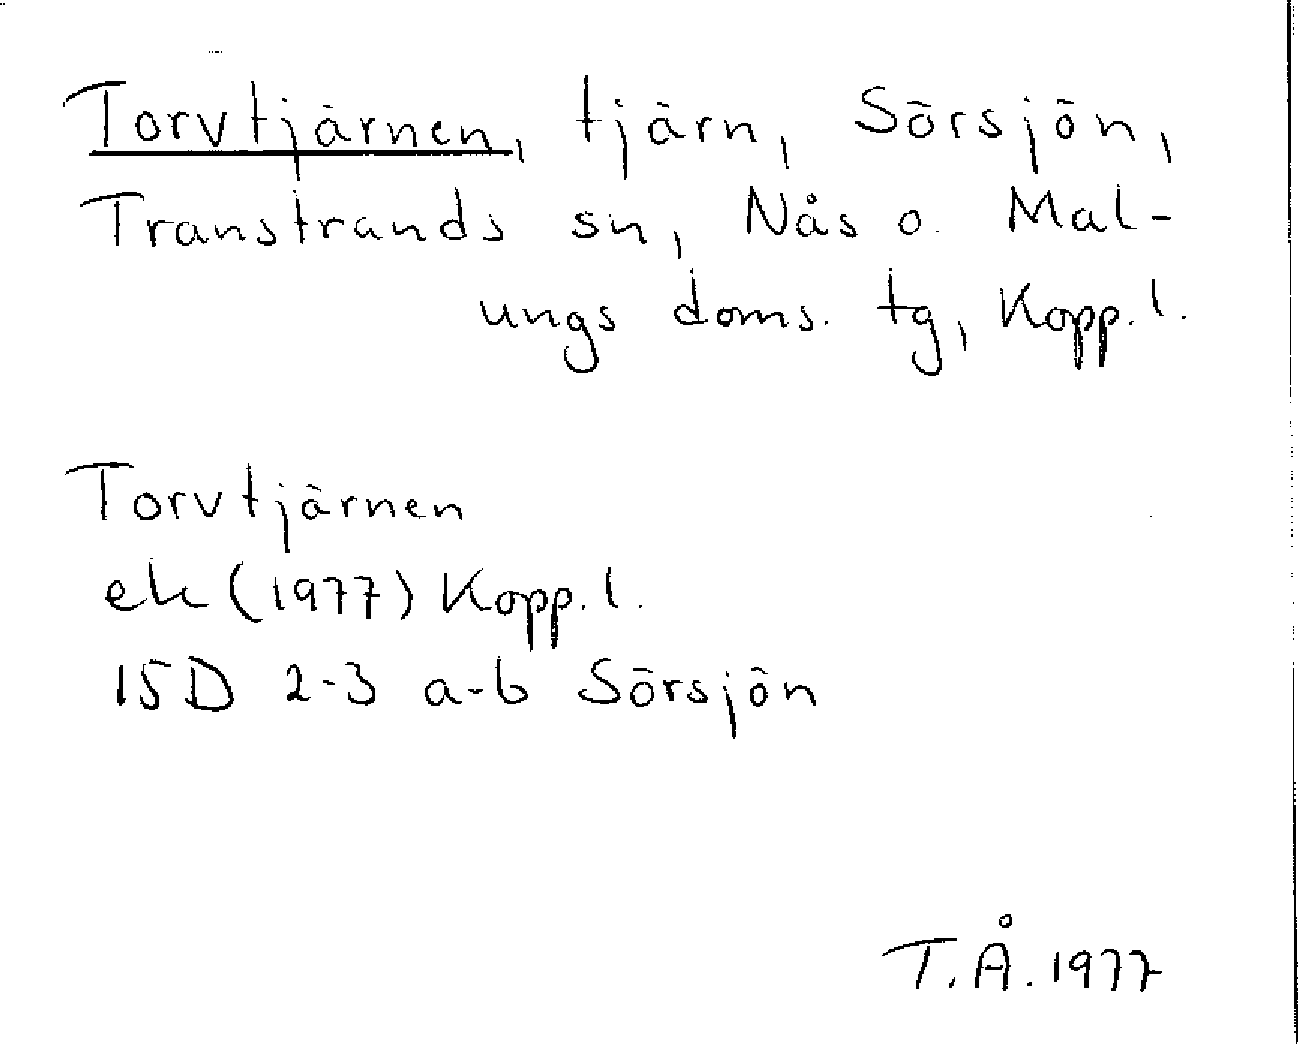 Torvtjärnen, tjärn, Sörsjön,
Transtrands sn, Nås o. Mal-
ungs doms. tg, Kopp. l.
Torvtjärnen
ek (1977) Kopp. l.
15D 2-3 a-b Sörsjön
T.Å. 1977